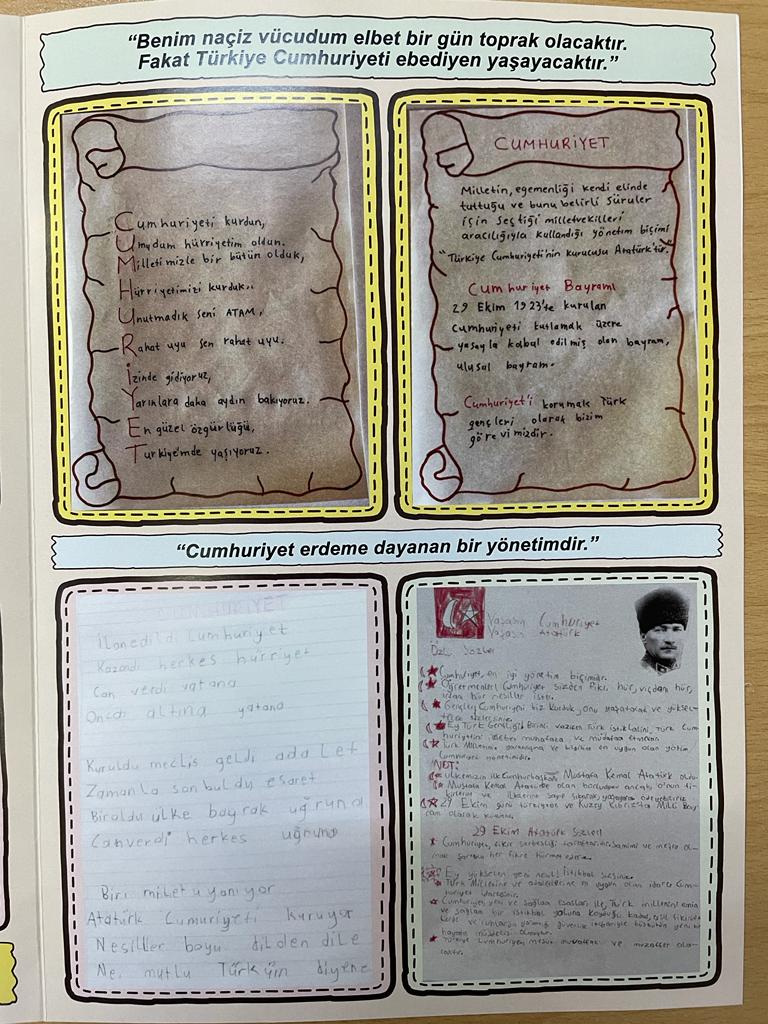 “Benim naçiz vücudum elbet bir gün toprak olacaktır.
Fakat Türkiye Cumhuriyeti ebediyen yaşayacaktır.”
Cumhuriyeti kurdun,
Umudum hürriyetim oldun.
Milletimizle bir bütün olduk,
Hürriyetimizi kurduk..
Unutmadık seni ATAM,
Rahat uyu sen rahat uyu.
İzinde gidiyoruz,
Yarınlara daha aydın bakıyoruz.
En güzel özgürlüğü,
Türkiye'mde yaşıyoruz.
CUMHURİYET
Milletin, egemenliği kendi elinde
tuttuğu ve bunu belirli süruler
için seçtiği milletvekilleri
aracılığıyla kullandığı yönetim biçimi
"Türkiye Cumhuriyeti'nin kurucusu Atatürk'tür."
Cumhuriyet Bayramı
29 Ekim 1923'te kurulan
cumhuriyeti kutlamak üzere
yasayla kabul edilmiş olan bayram,
ulusal bayram.
Cumhuriyet'i korumak Türk
gençleri olarak bizim
görevimizdir.
“Cumhuriyet erdeme dayanan bir yönetimdir.”
CUMHURİYET
İlan edildi cumhuriyet
Kazandı herkes hürriyet
Can verdi vatana
altına yatana
Kuruldu meclis geldi adalet
Zamanla son buldu esaret
Bir oldu ülke bayrak uğruna
Canverdi herkes uğruna
Biri millet uyanıyor
Atatürk Cumuriyeti kuruyor
Nesiller boyu dilden dile
Ne mutlu Türk'üm diyene
Yaşasın Cumhuriyet
Yaşasın Atatürk
Özlü Sözler
Cumhuriyet, en iyi yönetim biçimidir.
Öğretmenler! Cumhuriyet sizden fikri hür, vicdanı hür,
irfanı hür nesiller ister.
Gençler! Cumhuriyeti biz kurduk, onu yaşatacak ve yüksel-
tecek sizlersiniz.
Ey Türk Gençliği! Birinci vazifen Türk istiklalini, Türk Cum
huriyetini muhafaza ve müdafaa etmektir.
Türk Milletinin en uygun olan
Cumhuriyet yönetimidir.
NOT:
Ülkemizin ilk Cumhurbaşkanı Mustafa Kemal Atatürk
Mustafa Kemal Atatürk'e olan borcumuzu ancak o'nun il-
kelerine ve
29 Ekim günü Türkiye'de ve Kuzey Kıbrıs'ta Milli Bay
ram olarak
29 Ekim Atatürk Sözleri
Cumhuriyet, fikir serbestliği taraftarıdır. Samimi ve meşru ol-
mak şartıyla her fikre hürmet ederiz.
Ey yükselen yeni nesil! İstikbal sizsiniz.
Türk Milletinin ve adetlerine en uygun olan idare Cum-
huriyet idaresidir.
Cumhuriyet yeni ve sağlam esasları ile, Türk milletini emin
ve sağlam bir istikbal yoluna koyduğu kadar, asıl fikirlerde
ve ruhlarda yarattığı güvenlik itibariyle büsbütün yeni bir
hayatın müjdecisi olmuştur.
Türkiye Cumhuriyeti mesut, muvaffak ve muzaffer ola-
caktır.